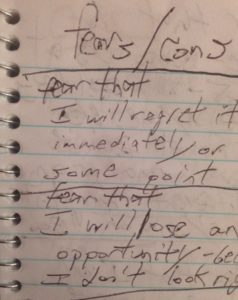 fears/cons
fear that
I will regret it
immediately or
some point
fear that
I will lose an
opportunity - be
I don't look rig